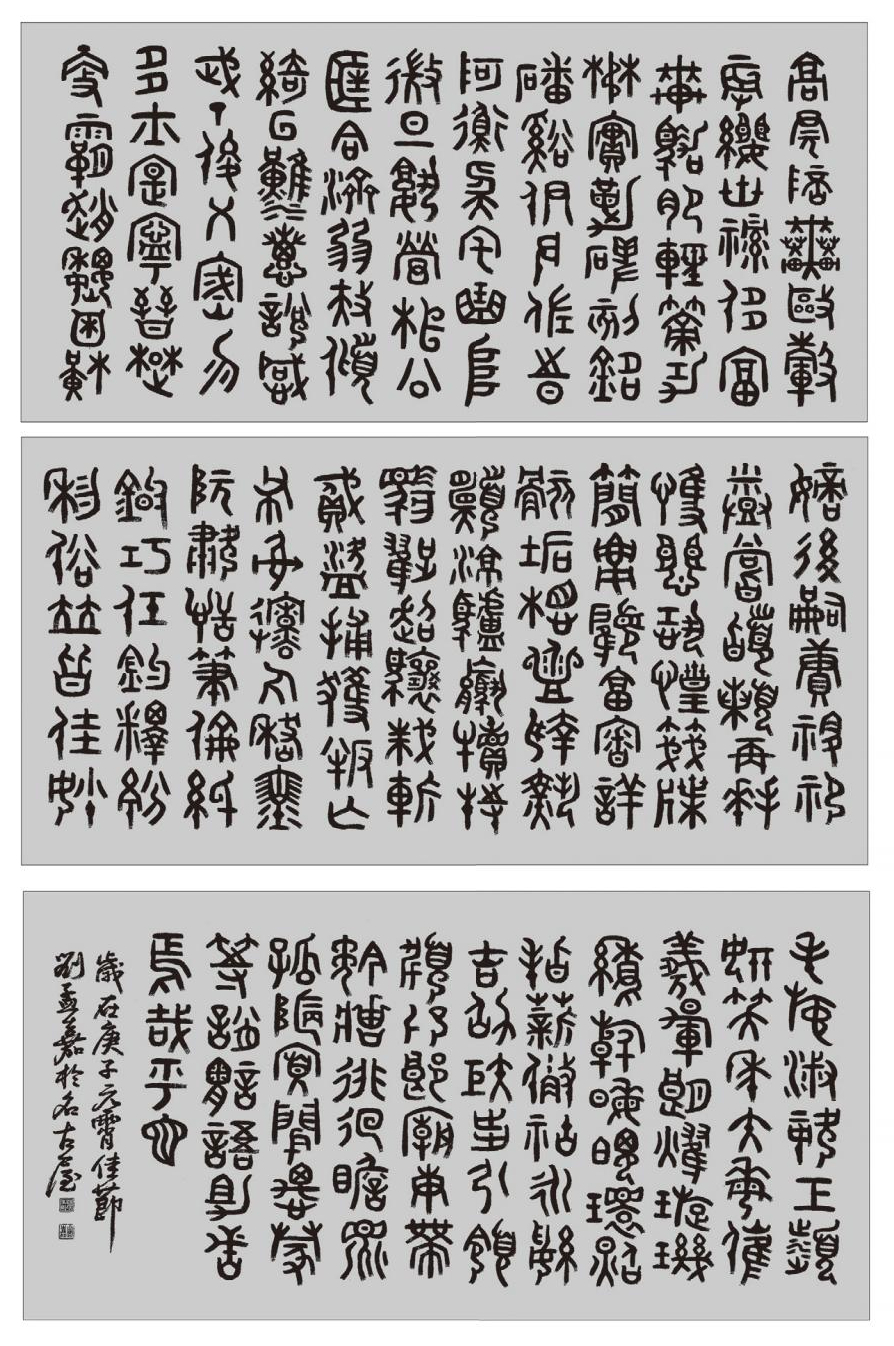 高冠陪輦驅轂
振纓世祿侈富
車駕肥輕策功
茂實勒碑刻銘
磻溪伊尹佐時
阿衡奄宅曲阜
微旦孰營桓公
匡合濟弱扶傾
綺回漢惠說感
武丁俊乂密勿
多士寔寧晉楚
更霸趙魏困橫
嫡後嗣續祭祀
烝嘗稽顙再拜
悚懼恐惶箋牒
簡要顧答審詳
骸垢想浴執熱
願涼驢騾犢特
駭躍超驤誅斬
賊盜捕獲叛亡
布射僚丸嵇琴
阮嘯恬筆倫紙
鈞巧任釣釋紛
利俗並皆佳妙
毛施淑姿工顰
妍笑年矢每催
羲暉朗曜璇璣
懸斡晦魄環照
指薪修祜永綏
吉劭矩步引領
俯仰廊廟束帶
矜莊徘徊瞻眺
孤陋寡聞愚蒙
等誚謂語助者
焉哉乎也
歲在庚子元宵佳節
劉孟嘉於名古屋